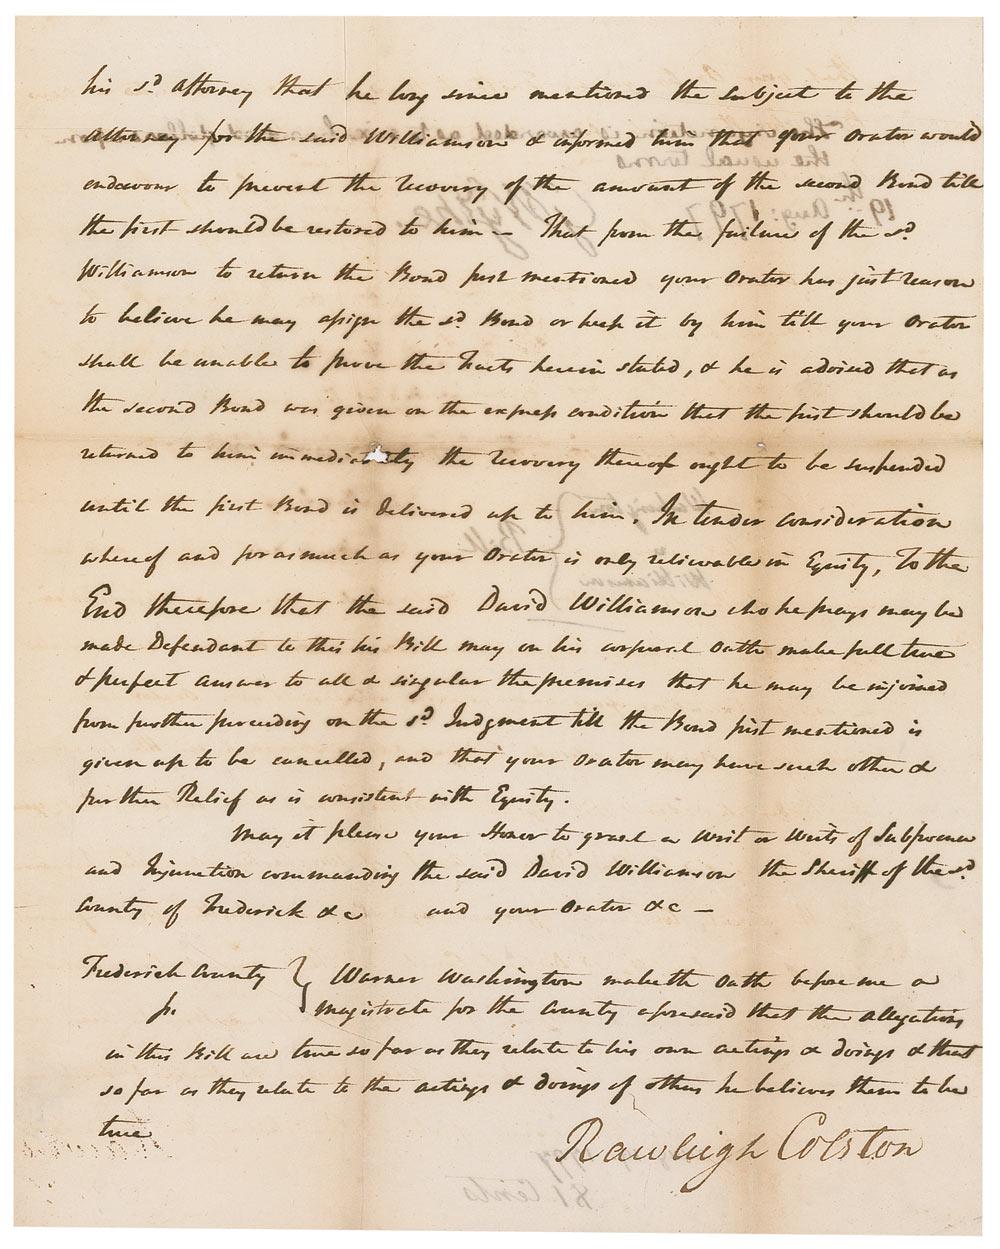 his sd. Attorney that he long since mentioned the subject to the
Attorney for the said Williamson & informed him that your Orator would
endeavour to prevent the recovery of the amount of the second Bond till
the first should be restored to him – That from the failure of the sd.
Williamson to return the Bond first mentioned your Orator has just reason
to believe he may assign the sd. Bond or keep it by him till your Orator
shall be unable to prove the Facts herein stated, & he is advised that as
the second Bond was given on the express condition that the first should be
returned to him immediately the recovery thereof ought to be suspended
until the first Bond is delivered up to him. In tender consideration
whereof and forasmuch as your Orator is only relievable in Equity, To the
End therefore that the said David Williamson who he prays may be
made Defendant to this his Bill may on his corporal Oath make full true
& perfect answer to all & singular the premises that he may be injoined
from further proceeding on the sd. Judgment till the Bond first mentioned is
given up to be cancelled, and that your Orator may have such other &
further Relief as is consistent with Equity.
May it please your Honor to grant a Writ or Writs of Subpoena
and Injunction commanding the said David Williamson the Sheriff of the sd.
County of Frederick &c and your Orator &c –
Frederick County } Warner Washington maketh Oath before me a
magistrate for the County aforesaid that the allegations
in this Bill are true so far as they relate to his own actings & doings & that
so far as they relate to the actings & doings of others he believes them to be
true
Rawleigh Colston
the usual terms
19th Aug: 1797
Washington
Bill
Williamson
81 Cents